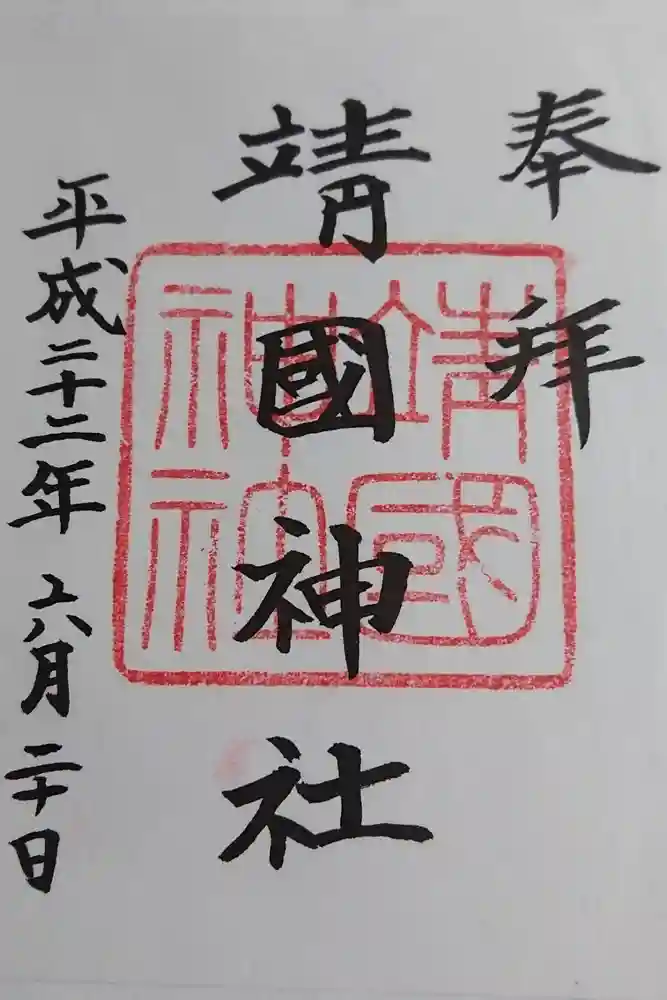 奉拝
靖國神社
靖國
神社
平成二十二年六月二十日